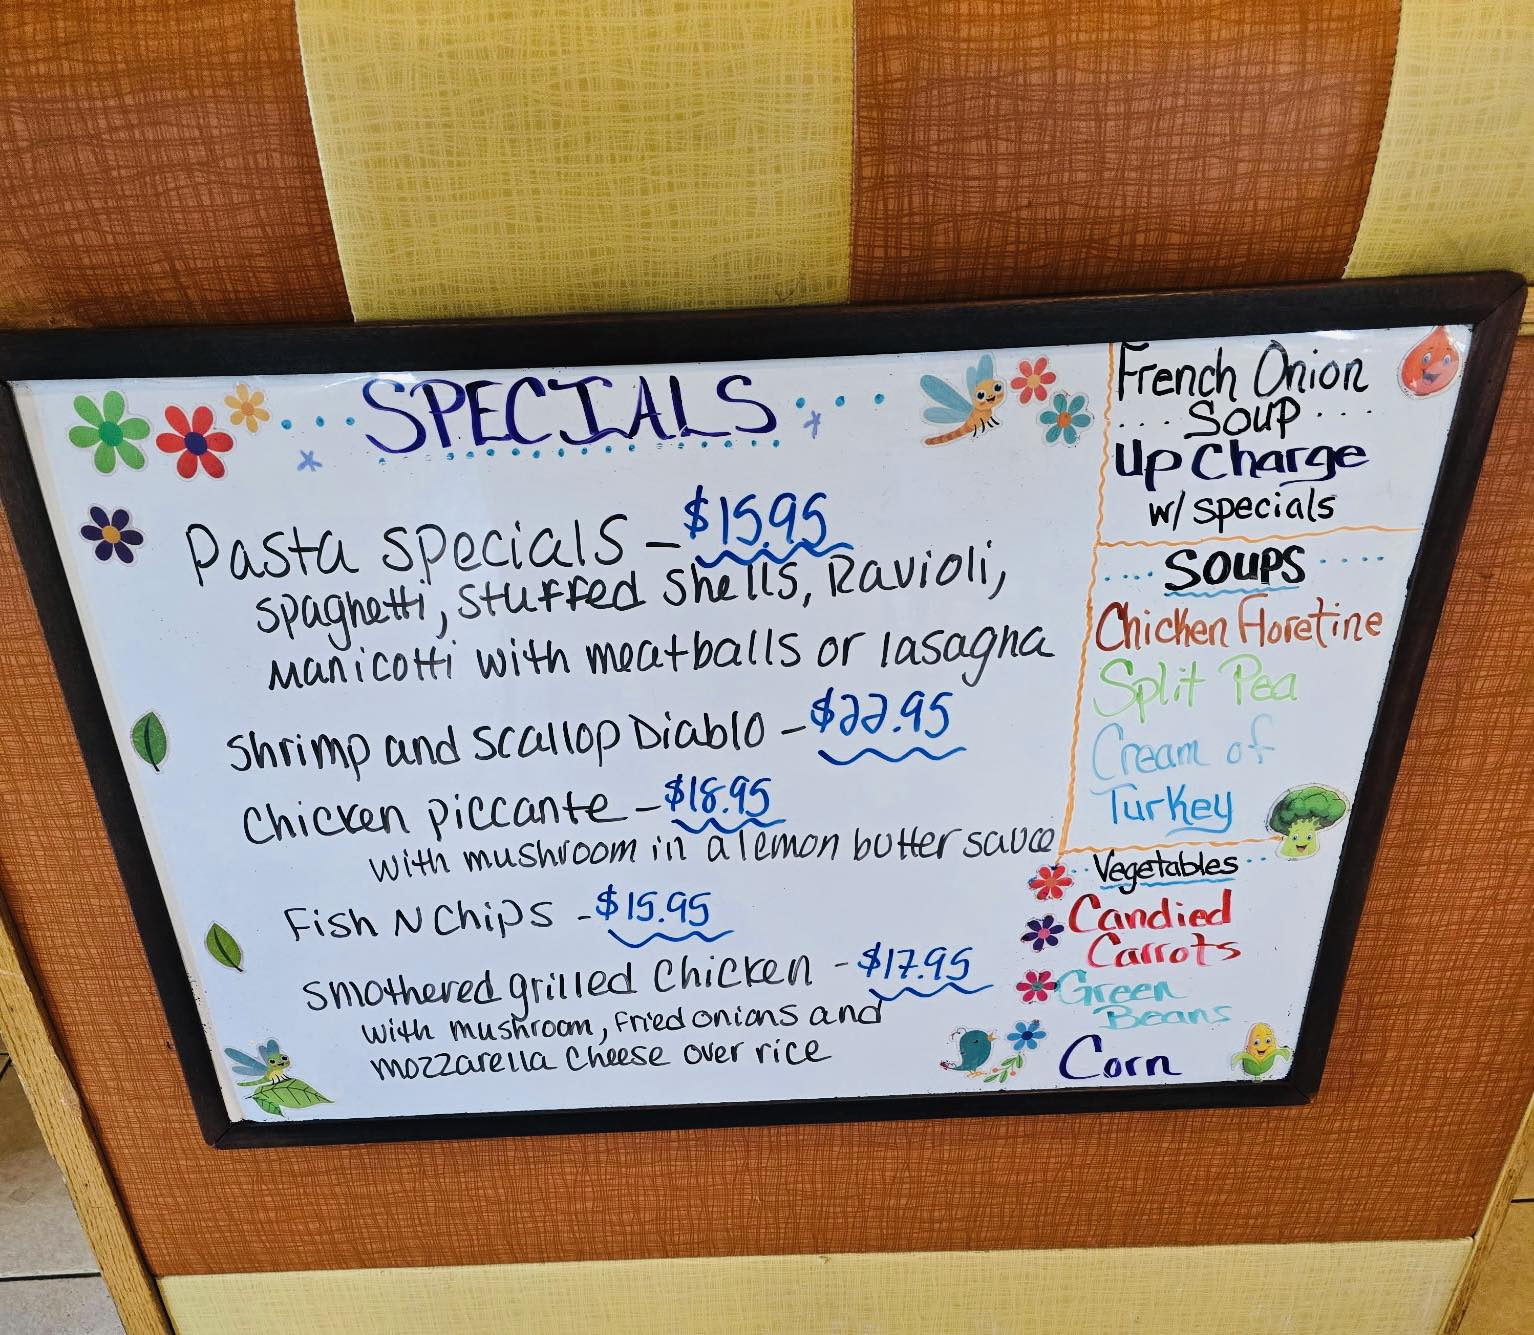 SPECIALS
Pasta specials - $15.95
spaghetti, stuffed shells, Ravioli,
Manicotti with meatballs or lasagna
Shrimp and scallop Diablo - $22.95
Chicken piccante - $18.95
with mushroom in a lemon butter sauce
Fish N Chips - $15.95
Smothered grilled chicken - $17.95
with mushroom, fried onions and
mozzarella cheese over rice
French Onion
Soup
Up Charge
w/ specials
SOUPS
Chicken Floretine
Split Pea
Cream of
Turkey
Vegetables
Candied
Carrots
Green
Beans
Corn